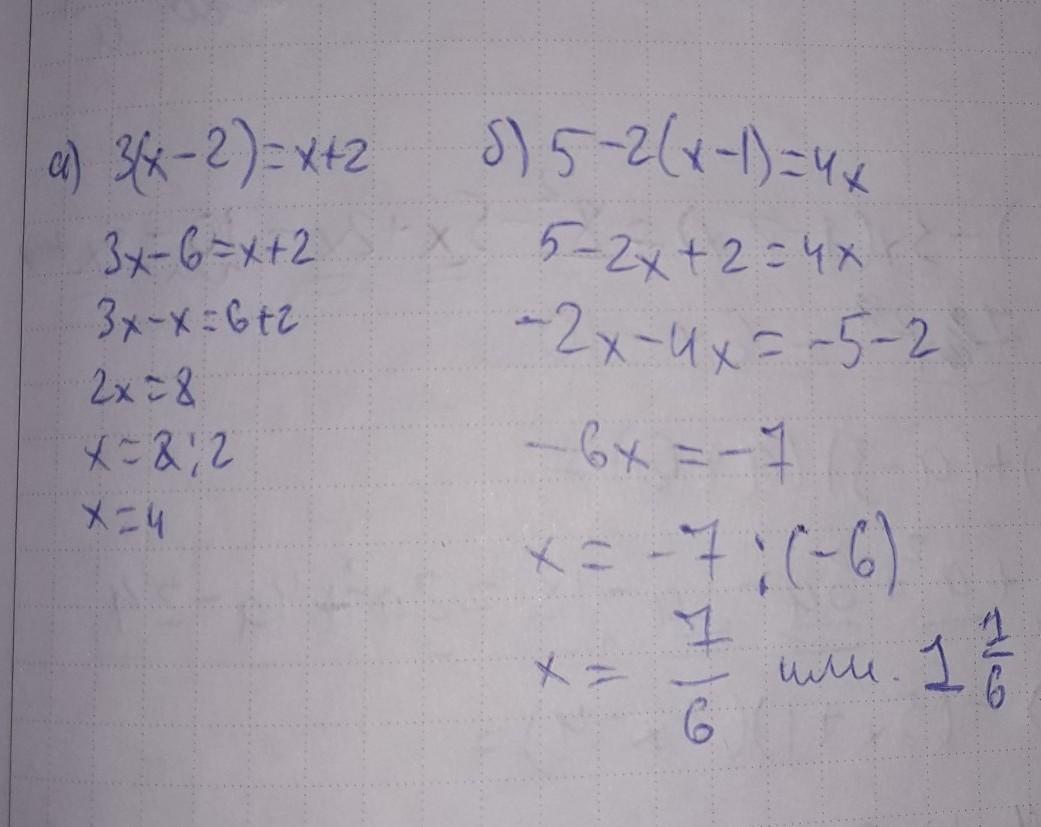 а) 3(x-2)=x+2
3x-6=x+2
3x-x=6+2
2x=8
x=8:2
x=4
б) 5-2(x-1)=4x
5-2x+2=4x
-2x-4x=-5-2
-6x=-7
x=-7:(-6)
x=7/6 или. 1 1/6